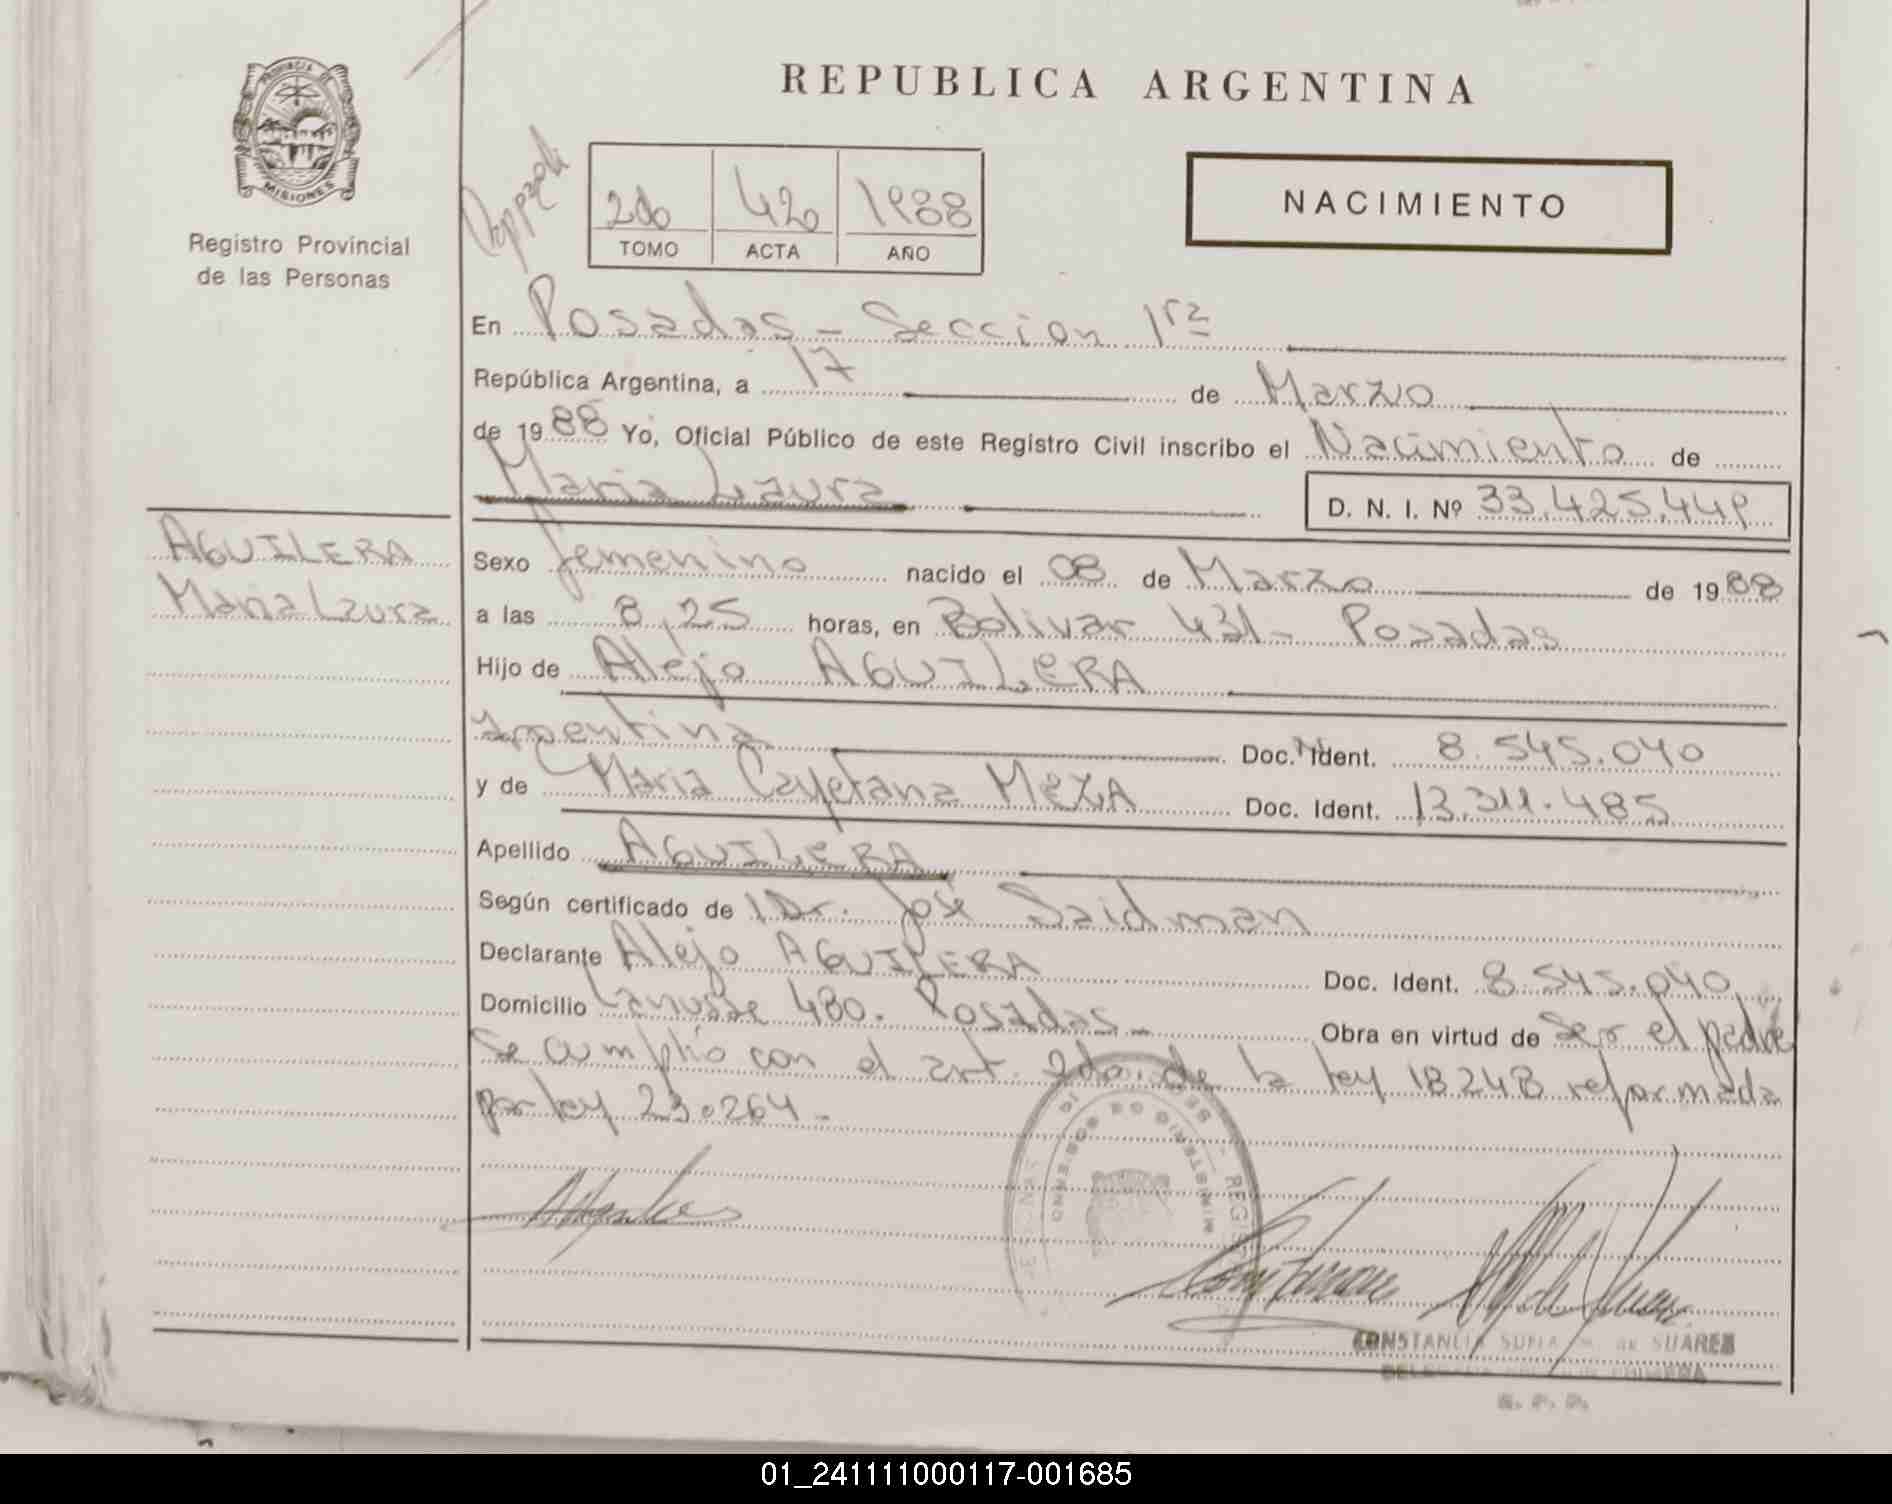 PROVINCIA DE
MISIONES
Registro Provincial
de las Personas
REPUBLICA ARGENTINA
NACIMIENTO
2do 420 1988
TOMO ACTA AÑO
En Posadas - Seccion 1ra
República Argentina, a 17 de Marzo
de 1988 Yo, Oficial Público de este Registro Civil inscribo el Nacimiento de
Maria Laura
D. N. I. Nº 33.425.449
AGUILERA
Maria Laura
Sexo femenino nacido el 08 de Marzo de 1988
a las 8,25 horas, en Bolivar 431- Posadas
Hijo de Alejo AGUILERA
Argentina Doc. Ident. 8.545.040
y de Maria Cayetana MEZA Doc. Ident. 13.311.485
Apellido AGUILERA
Según certificado de Dr. José Saidman
Declarante Alejo AGUILERA Doc. Ident. 8.545.040
Domicilio Lanusse 480. Posadas- Obra en virtud de ser el padre
Se cumplió con el art. 2do. de la ley 18248 reformada
por ley 23.264-
MINISTERIO DE GOBIERNO
CONSTANCIA SUAREZ
01_241111000117-001685